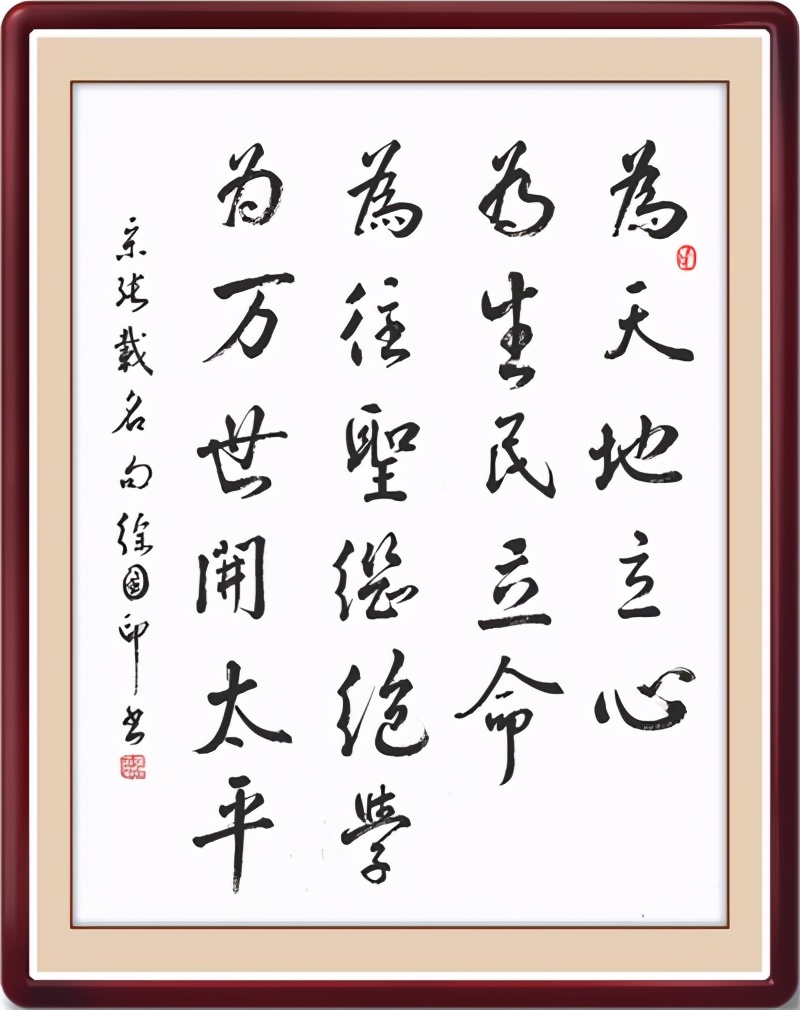 為天地立心
為生民立命
為往聖継絶學
为万世開太平
宋張載名句徐國印书